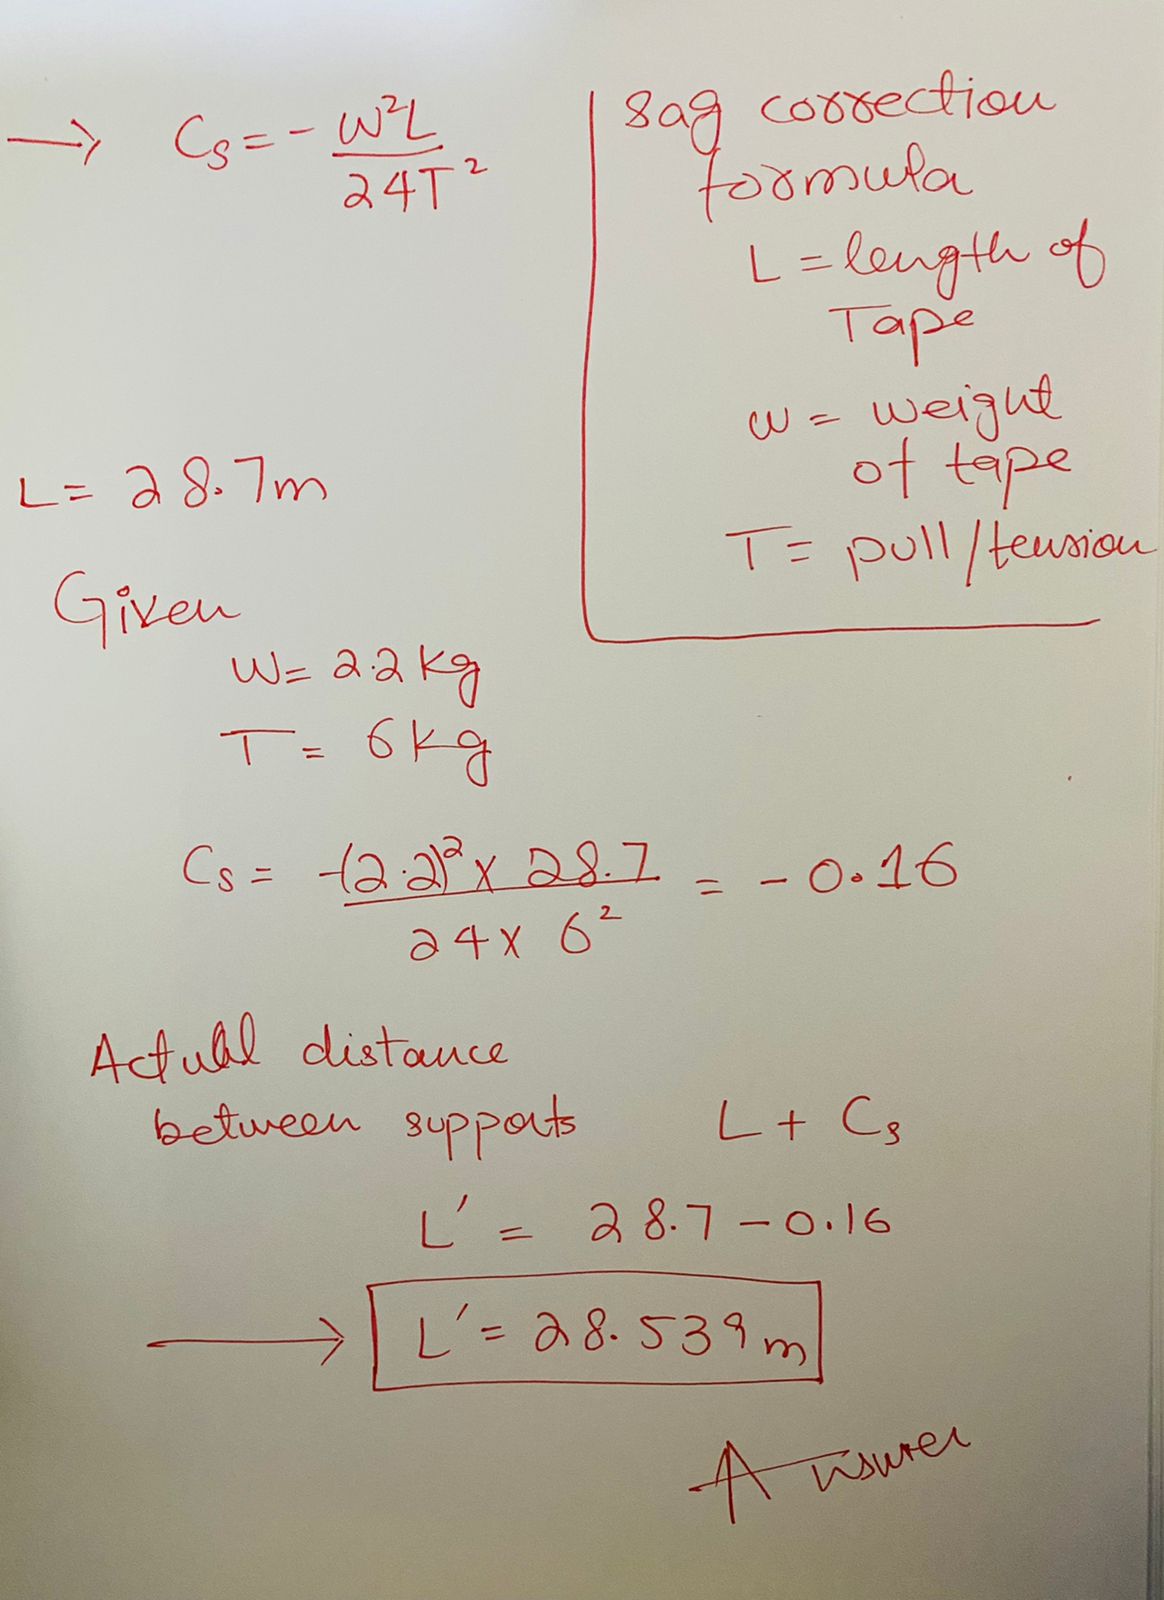 → Cs = - W²L / 24T²
sag correction
formula
L = length of
Tape
w = weight
of tape
T = pull/tension
L = 28.7m
Given
W = 2.2 kg
T = 6 kg
Cs = -(2.2)² x 28.7 / 24 x 6² = - 0.16
Actual distance
between supports L + Cs
L' = 28.7 - 0.16
→ L' = 28.539 m
Answer